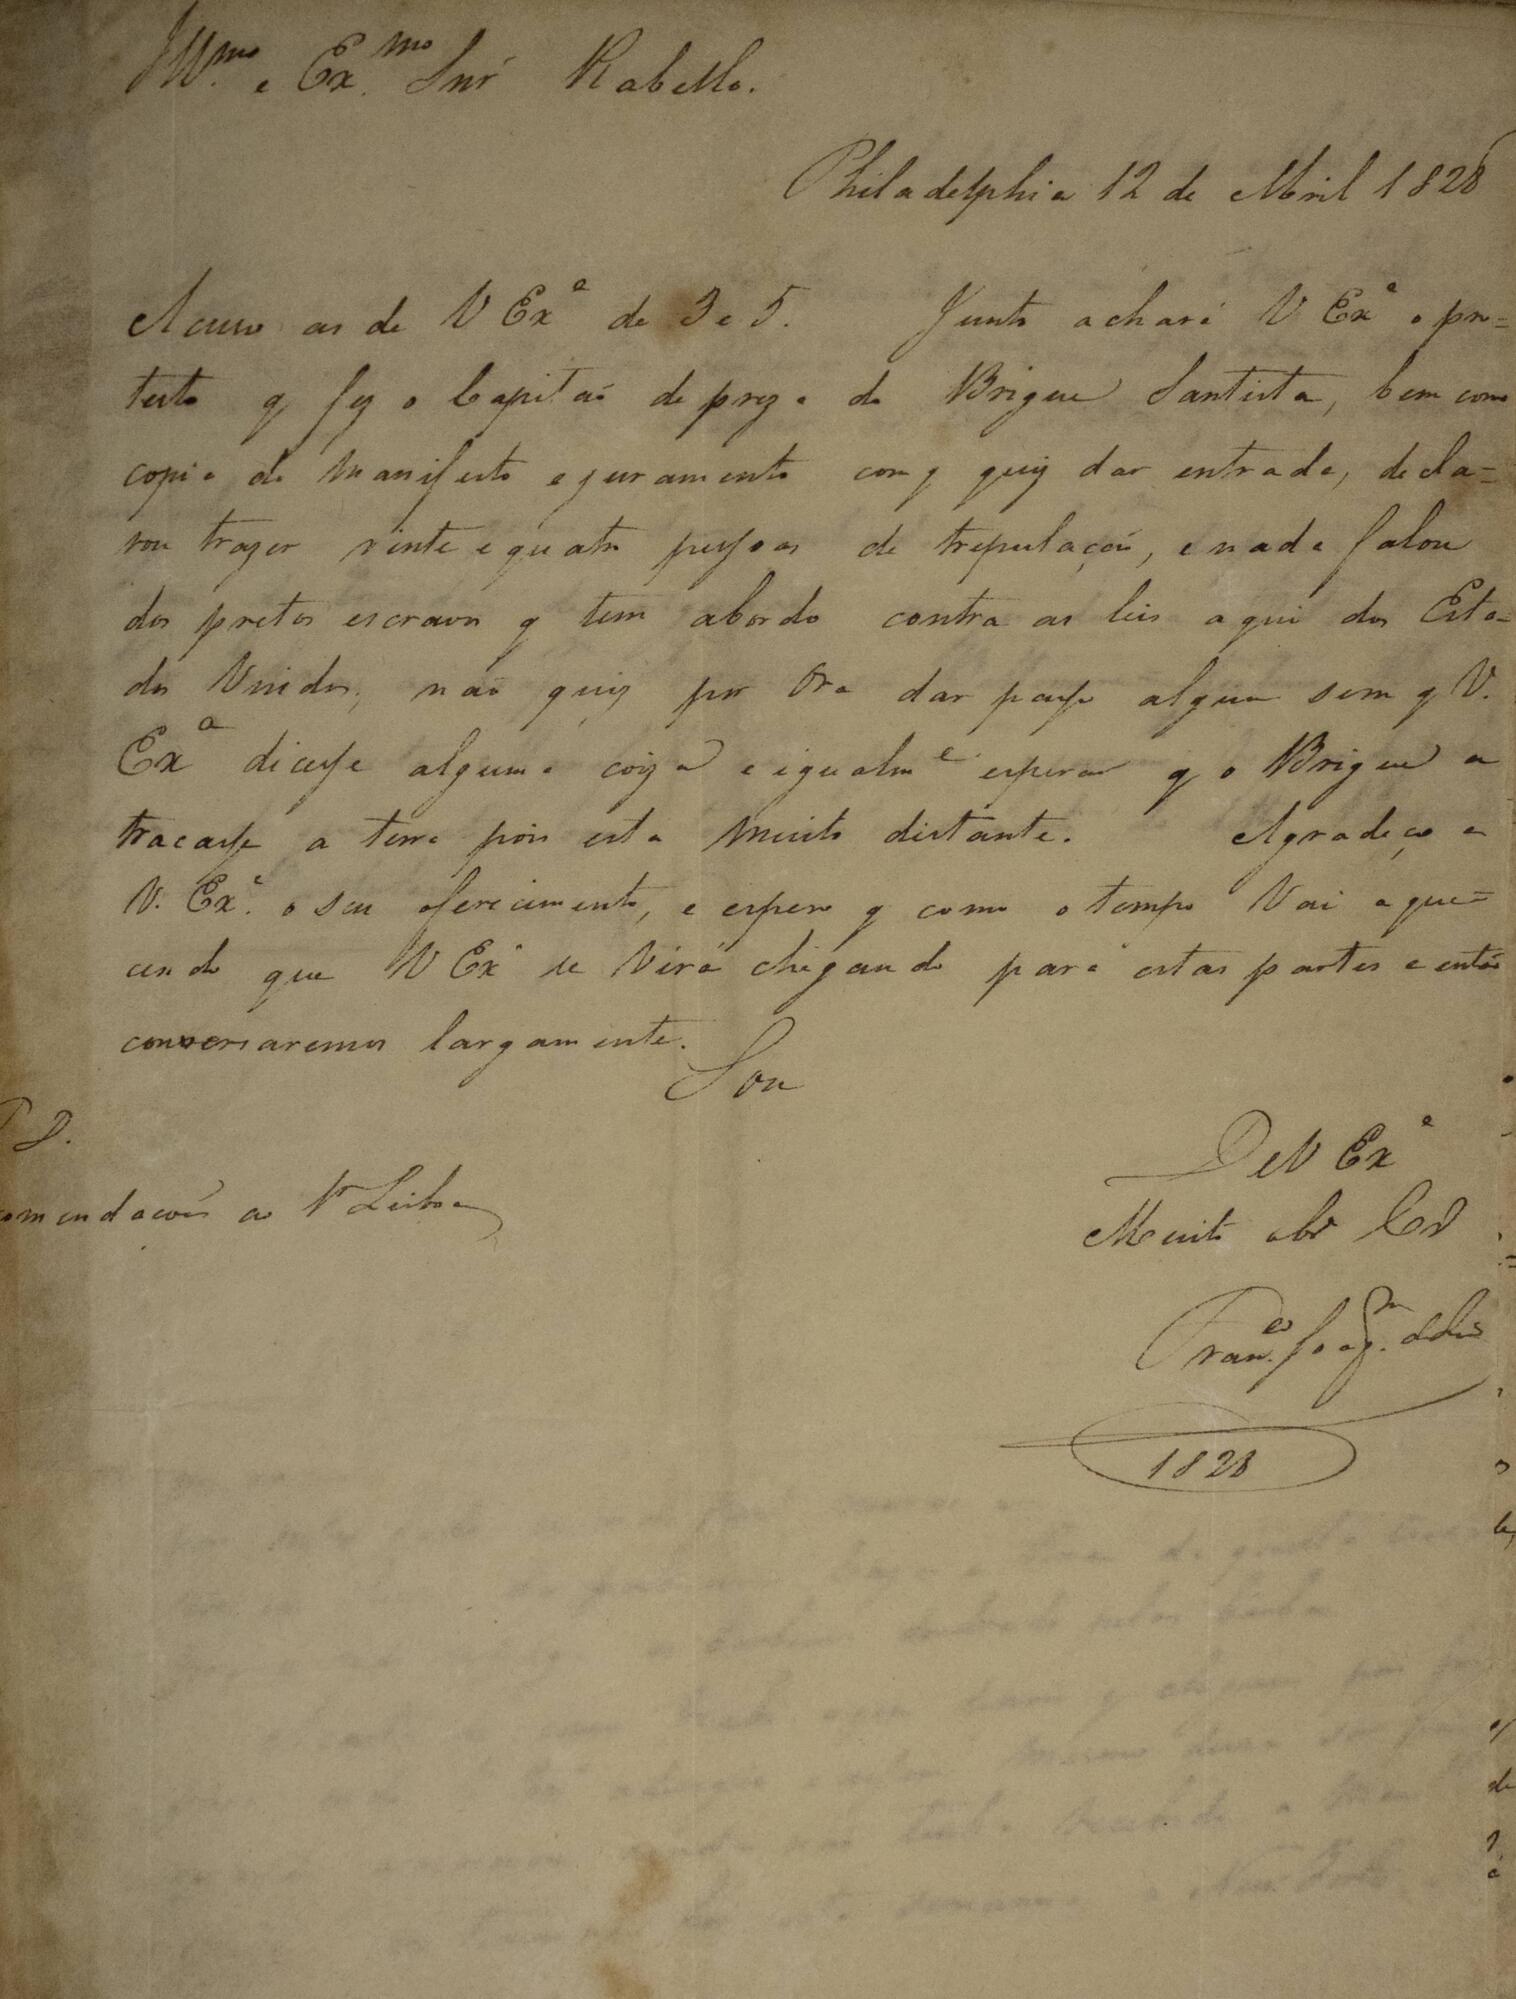 Illmo. e Exmo. Snr Rabello.
Philadelphia 12 de Abril 1828
Acuso as de V Exa de 3 e 5. Junto achará V Exa o pro=
testo q fez o Capitaõ de preza do Brigue Santista, bem como
copia do Manifesto e juramento com q quiz dar entrada, decla=
rou trazer vinte e quatro pessoas de trepulaçaõ, e nada falou
dos pretos escravos q tem abordo contra as leis aqui dos Esta=
dos Unidos, naõ quiz por Ora dar passo algum sem q V.
Exa dicesse alguma coiza e igualme esperar q o Brigue a
tracasse a terra pois esta Muito distante. Agradeço a
V. Exa. o seu oferecimento, e espero q como o tempo Vai aque=
cendo que V Exa se Virá chegando para estas partes e entaõ
conversaremos largamente.
Sou
P S.
comendacoens ao Sr Lisboa
De V Exa
Muito obr Cr
Franco. Joaqm.
1828